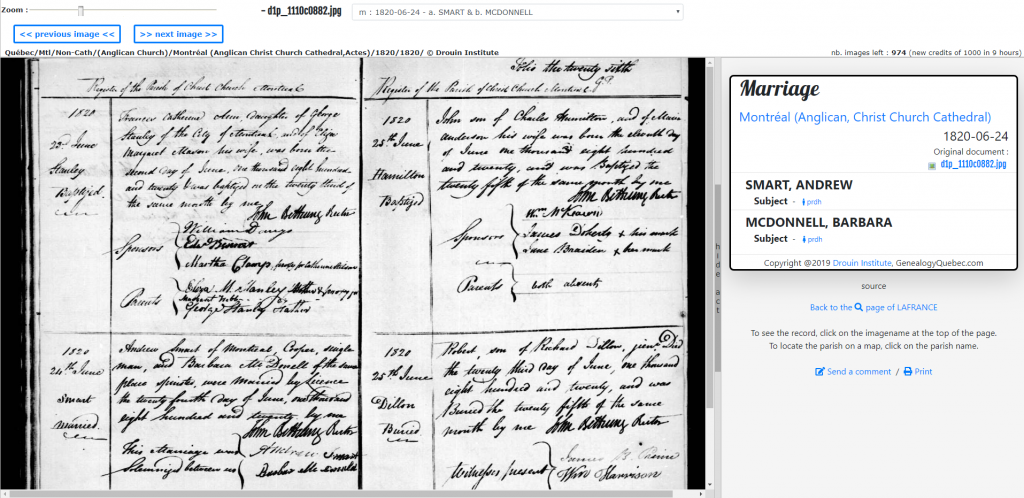 Zoom :
– d1p_1110c0882.jpg
m : 1820-06-24 - a. SMART & b. MCDONNELL
<< previous image <<
>> next image >>
Québec/Mtl/Non-Cath/(Anglican Church)/Montréal (Anglican Christ Church Cathedral,Actes)/1820/1820/ © Drouin Institute
nb. images left : 974 (new credits of 1000 in 9 hours)
Register of the Parish of Christ Church Montreal
1820
23d June
Stanley
Baptized
Frances Catherine Ann, daughter of George
Stanley of the City of Montreal, and of Eliza
Margaret Mason his wife, was born the
second day of June, one thousand eight hundred
and twenty & was baptized on the twenty third of
the same month by me
John Bethune Rector
Sponsors
William
Martha
Parents
George Stanley Father
1820
24th June
Smart
married.
Andrew Smart of Montreal, Cooper, single
man, and Barbara Mc Donell of the same
place spinster, were married by licence
the twenty fourth day of June, one thousand
eight hundred and twenty by me
John Bethune Rector
This Marriage was
Solemnized between us
Andrew Smart
Barbar Mc Donald
Folio the twenty sixth
Register of the Parish of Christ Church Montreal
1820
25th June
Hamilton
Baptized
John son of Charles Hamilton, and of Maria
Anderson his wife was born the eleventh day
of June one thousand eight hundred
and twenty, and was Baptized the
twenty fifth of the same month by me
John Bethune Rector
Sponsors
James Doherty + his mark
Jane + her mark
Parents
both absents
1820
25th June
Dillon
Buried
Robert, son of Richard Dillon, junr. Died
the twenty third day of June, one thousand
eight hundred and twenty, and was
Buried the twenty fifth of the same
month by me John Bethune Rector
Witnesses present
James
Wm Harrison
hide act
Marriage
Montréal (Anglican, Christ Church Cathedral)
1820-06-24
Original document :
d1p_1110c0882.jpg
SMART, ANDREW
Subject - prdh
MCDONNELL, BARBARA
Subject - prdh
Copyright @2019 Drouin Institute, GenealogyQuebec.com
source
Back to the page of LAFRANCE
To see the record, click on the imagename at the top of the page.
To locate the parish on a map, click on the parish name.
Send a comment / Print